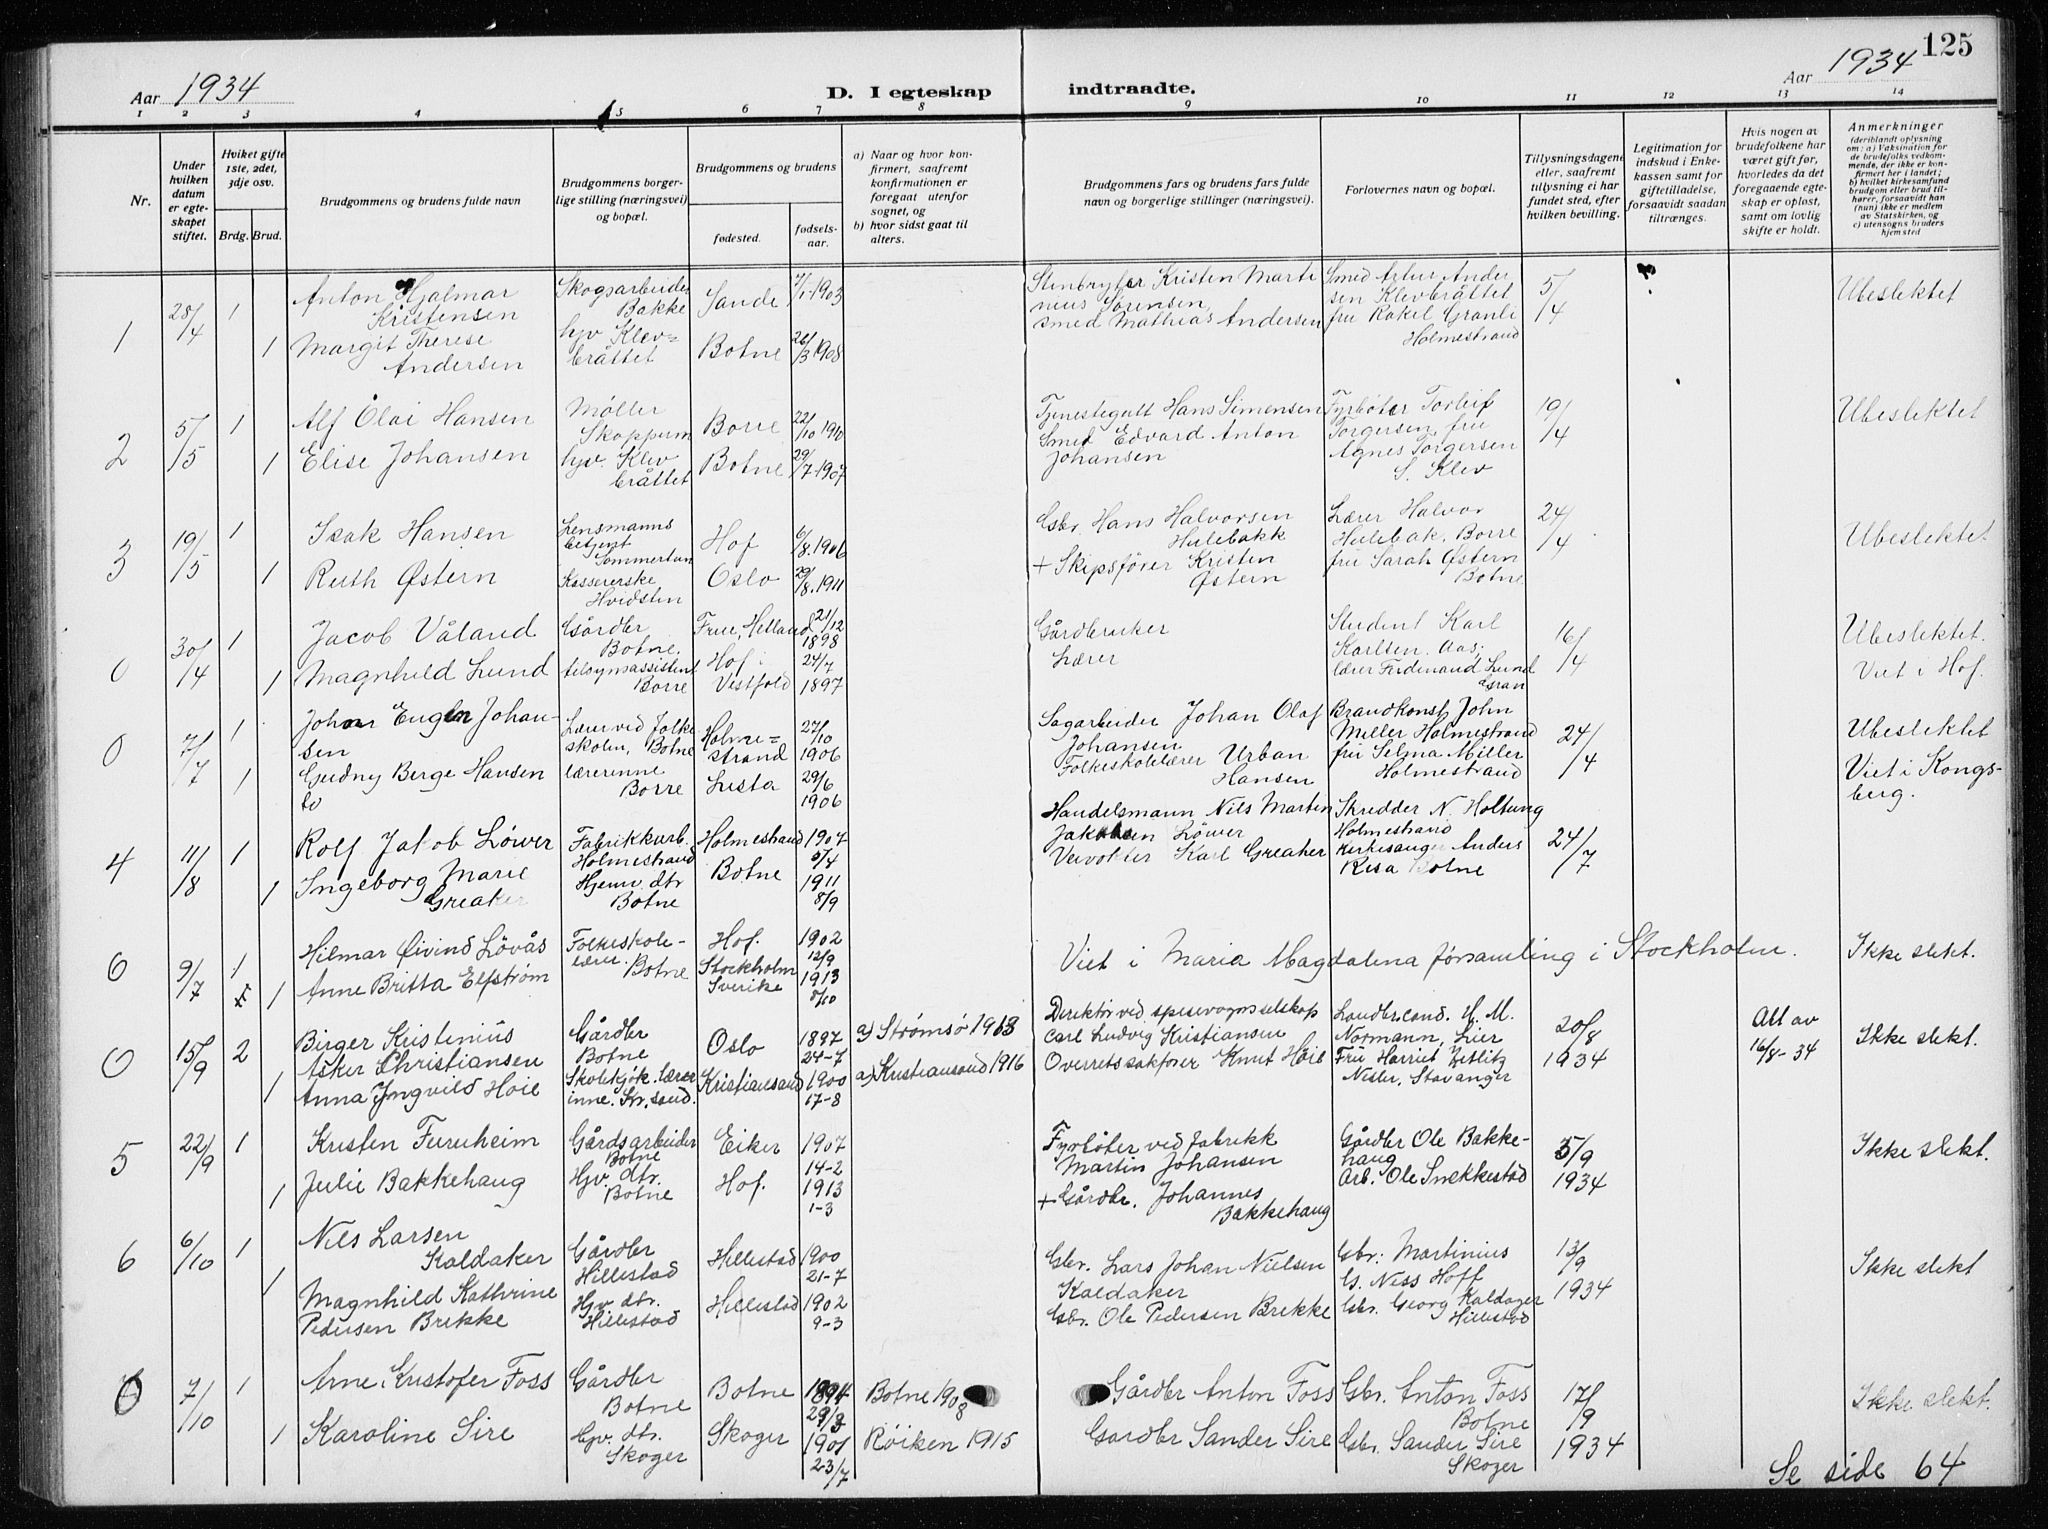 125
Aar 1934
D. I egteskap
indtraadte.
Aar 1934
1 2 3 4 5 6 7 8 9 10 11 12 13 14
Nr.
Under hvilken datum er egteskapet stiftet.
Hviket gifte 1ste, 2det, 3dje osv.
Brdg. Brud.
Brudgommens og brudens fulde navn
Brudgommens borgerlige stilling (næringsvei) og bopæl.
Brudgommens og brudens
fødested.
fødselsaar.
a) Naar og hvor konfirmert, saafremt konfirmationen er foregaat utenfor sognet, og
b) hvor sidst gaat til alters.
Brudgommens fars og brudens fars fulde navn og borgerlige stillinger (næringsvei).
Forlovernes navn og bopæl.
Tillysningsdagene eller, saafremt tillysning ei har fundet sted, efter hvilken bevilling.
Legitimation for indskud i Enkekassen samt for giftetilladelse, forsaavidt saadan tiltrænges.
Hvis nogen av brudefolkene har været gift før, hvorledes da det foregaaende egteskap er opløst, samt om lovlig skifte er holdt.
Anmerkninger
(deriblandt oplysning om: a) Vaksination for de brudefolks vedkommende, der ikke er konfirmert her i landet; b) hvilket kirkesamfund brudgom eller brud tilhører, forsaavidt han (hun) ikke er medlem av Statskirken, og c) utensogns bruders hjemsted
1 28/4 1 Anton Hjalmar Kristensen Skogsarbeider Bakke Sande 7/1-1903 Stenbryter Kristen Martinius Sørensen Smed Artur Andersen Klevbråttet 5/4 Ubeslektet
1 Margit Therese Andersen hjv Klevbråttet Botne 26/3 1908 smed Mathias Andersen fru Rakel Granli Holmestrand
2 5/5 1 Alf Olai Hansen Møller Skoppum Borre 22/10 1910 Tjenestegutt Hans Simensen Fyrbøter Torleif Torgersen, fru 19/4 Ubeslektet
1 Elise Johansen hjv. Klevbråttet Botne 29/7-1907 Smed Edvard Anton Johansen Agnes Torgersen S. Klev
3 19/5 1 Isak Hansen Lensmannsbetjent Sommertun Hof 6/8.1906 Gbr. Hans Halvorsen Hulebakk Lærer Halvor Hulebak, Borre 24/4 Ubeslektet
1 Ruth Østern Kassererske Hvidsten Oslo 29/8.1911 + Skipsfører Kristen Østern fru Sarah Østern Botne
0 30/4 1 Jacob Våland Gårdbr Botne. Frue, Hetland 21/12 1898 Gårdbruker Student Karl Karlsen, Aas; 16/4 Ubeslektet.
1 Magnhild Lund tilsynsassistent Borre Hof i Vestfold 24/7 1897 Lærer lærer Ferdinand Lund Gran Viet i Hof.
0 7/7 1 Johan Eugen Johansen Lærer ved folkeskolen, Botne Holmestrand 27/10 1906 Sagarbeider Johan Olaf Johansen Brandkonst. John Miller Holmestrand 24/4 Ubeslektet
1 Gudny Berge Hansen lærerinne Borre Lista 29/6 1906 Folkeskolelærer Urban Hansen fru Selma Miller Holmestrand Viet i Kongsberg.
4 11/8 1 Rolf Jakob Löwer Fabrikkarb. Holmestrand Holmestrand 1907 5/4 Handelsmann Nils Martin Jakobsen Löwer Skredder N. Holtung Holmestrand 24/7
1 Ingeborg Marie Greaker Hjemv. dtr Botne Botne 1911 8/9 Vervokter Karl Greaker kirkesanger Anders Resa Botne
6 9/7 1 Hilmar Øivind Lövås Folkeskolelærer Botne Hof. 1902 12/9 Viet i Maria Magdalena församling i Stockholm. Ikke slekt.
1 Anne Britta Elfström Stockholm Sverike 1913 8/10
0 15/9 2 Birger Kristinius Asker Christiansen Gårdbr Botne Oslo 1897 24-7 a) Strømsø 1913 Direktør ved spisevognsselskap Carl Ludvig Kristiansen Landbr.cand. H. M. Normann, Lier 20/8 1934 Att av 16/8-34 Ikke slekt.
1 Anna Yngvild Høie Skolekjøk.lærerinne. Kr.sand. Kristiansand 1900 17-8 a) Kristiansand 1916 Overretssakfører Knut Høie Fru Harriet Zetlitz Nisler, Stavanger
5 22/9 1 Kristen Furuheim Gårdsarbeider Botne Eiker 1907 14-2 Fyrbøter ved fabrikk Martin Johansen Gårdbr Ole Bakkehaug 5/9 1934 Ikke slekt.
1 Julie Bakkehaug Hjv. dtr. Botne Hof. 1913 1-3 + Gårdbr. Johannes Bakkehaug Arb. Ole Snekkestad
6 6/10 1 Nils Larsen Kaldaker Gårdbr Hillestad Hillestad 1900 21-7 Gbr. Lars Johan Nielsen Kaldaker Gbr: Martinius G. Niss Hoff 13/9 1934 Ikke slekt
1 Magnhild Kathrine Pedersen Brekke Hjv. dtr. Hillestad Hillestad 1902 9-3 Gbr. Ole Pedersen Brekke Gbr. Georg Kaldager Hillestad
0 7/10 1 Arne Kristofer Foss Gårdbr Botne Botne 1894 29/3 Botne 1908 Gårdbr Anton Foss Gbr. Anton Foss Botne 17/9 1934 Ikke slekt.
1 Karoline Sire Hjv. dtr. Skoger Skoger 1901 23/7 Røiken 1915 Gardbr Sander Sire Gbr. Sander Sire Skoger
Se side 64